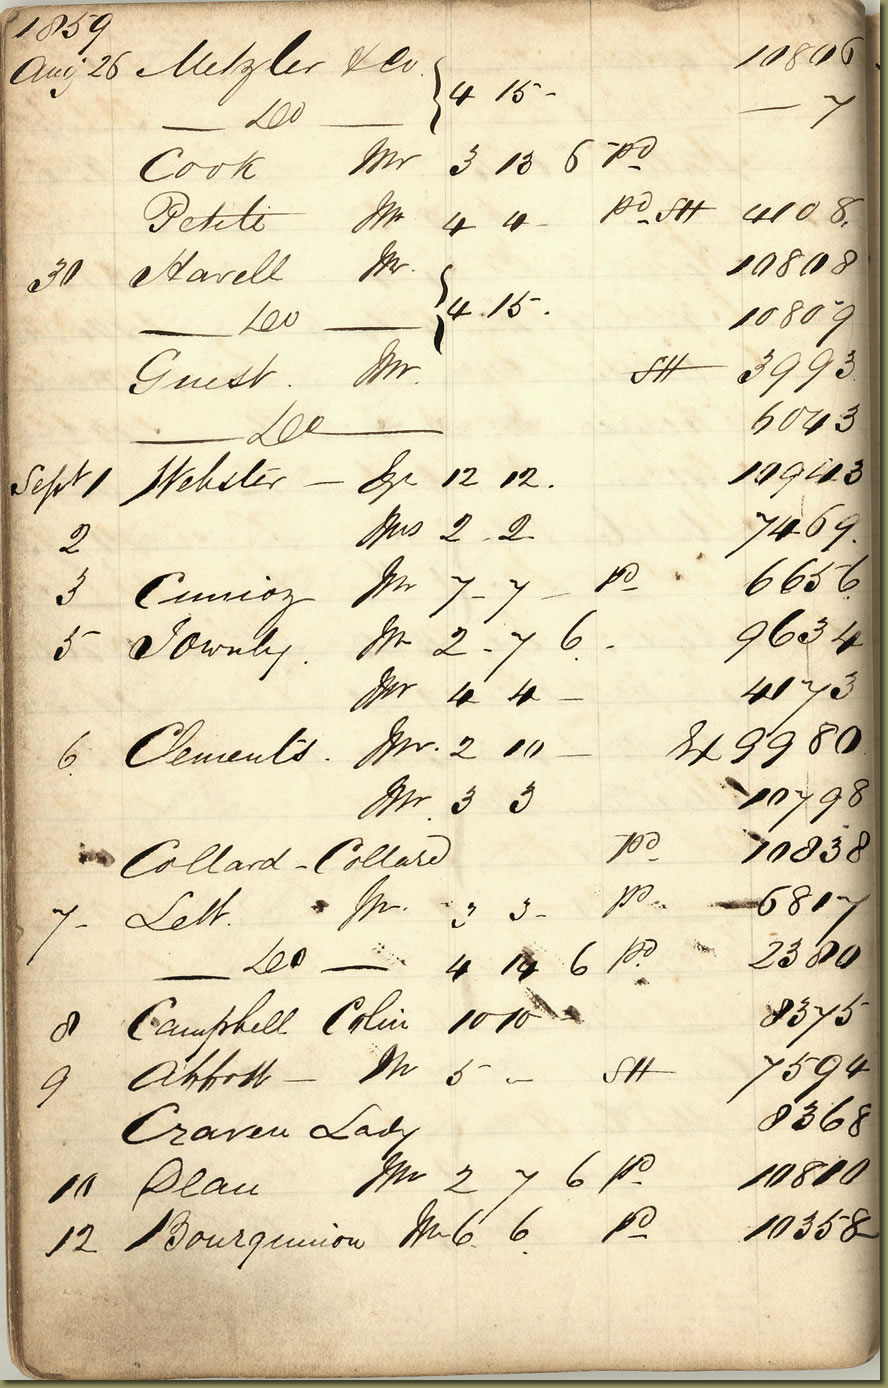 1859
Aug 26 Metzler & Co. 10806
— Do — } 4 15 - — 7
Cook Mr 3 13 6 Pd
Petite Mr 4 4 - Pd. SH 4108.
30 Havell Mr. 10808
— Do — } 4 15 . 10809
Guest. Mr. SH 3993
— Do — 6043
Sept 1 Webster — 12 12. 10943
2 Mrs 2 2 7469.
3 Mr 7 - 7 — Pd 6656
5 Townly. Mr 2 - 7 6. - 9634
Mr 4 4 — 4173
6. Clements. Mr. 2 10 — 9980
Mr. 3 3 10798
Collard - Collard Pd 10838
7 - Lett. Mr. 3 3 - Pd. 6817
— Do — 4 14 6 Pd. 2380
8 Campbell Colin 10 10 - 8375
9 Abbott — Mr 5 - SH 7594
Craven Lady 8368
10 Mr 2 7 6 Pd 10810
12 Mr 6. 6. Pd 10358